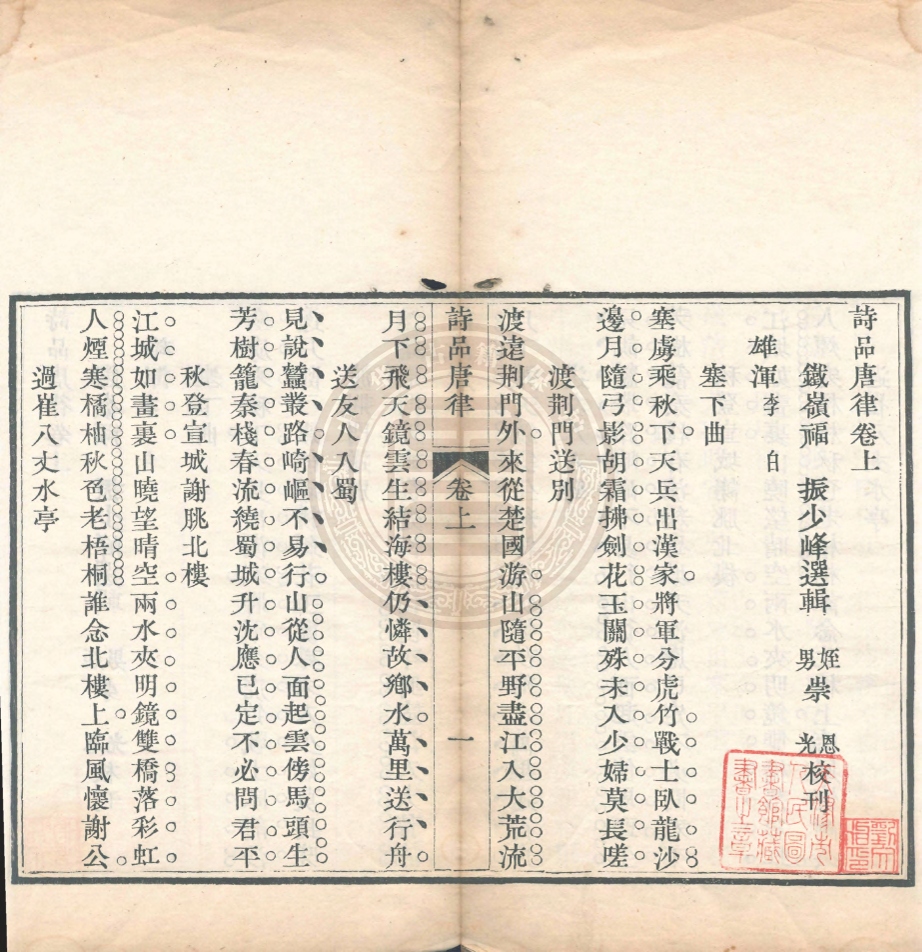 詩品唐律卷上
鐵嶺福振少峰選輯姪男崇恩光校刊
雄渾李白
塞下曲
塞虜乘秋下天兵出漢家將軍分虎竹戰士臥龍沙
邊月隨弓影胡霜拂劍花玉關殊未入少婦莫長嗟
渡荆門送別
渡遠荆門外來從楚國游山隨平野盡江入大荒流
詩品唐律卷上一
月下飛天鏡雲生結海樓仍憐故鄉水萬里送行舟
送友人入蜀
見說蠶叢路崎嶇不易行山從人面起雲傍馬頭生
芳樹籠秦棧春流繞蜀城升沈應已定不必問君平
秋登宣城謝脁北樓
江城如畫裏山曉望晴空兩水夾明鏡雙橋落彩虹
人煙寒橘柚秋色老梧桐誰念北樓上臨風懷謝公
過崔八丈水亭
天津市
人民圖
書館藏
書之章